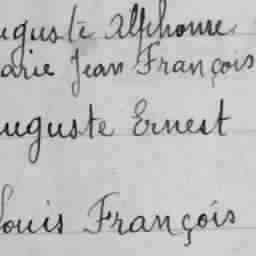 uguste Alphonse
arie Jean François
uguste Ernest
Louis François